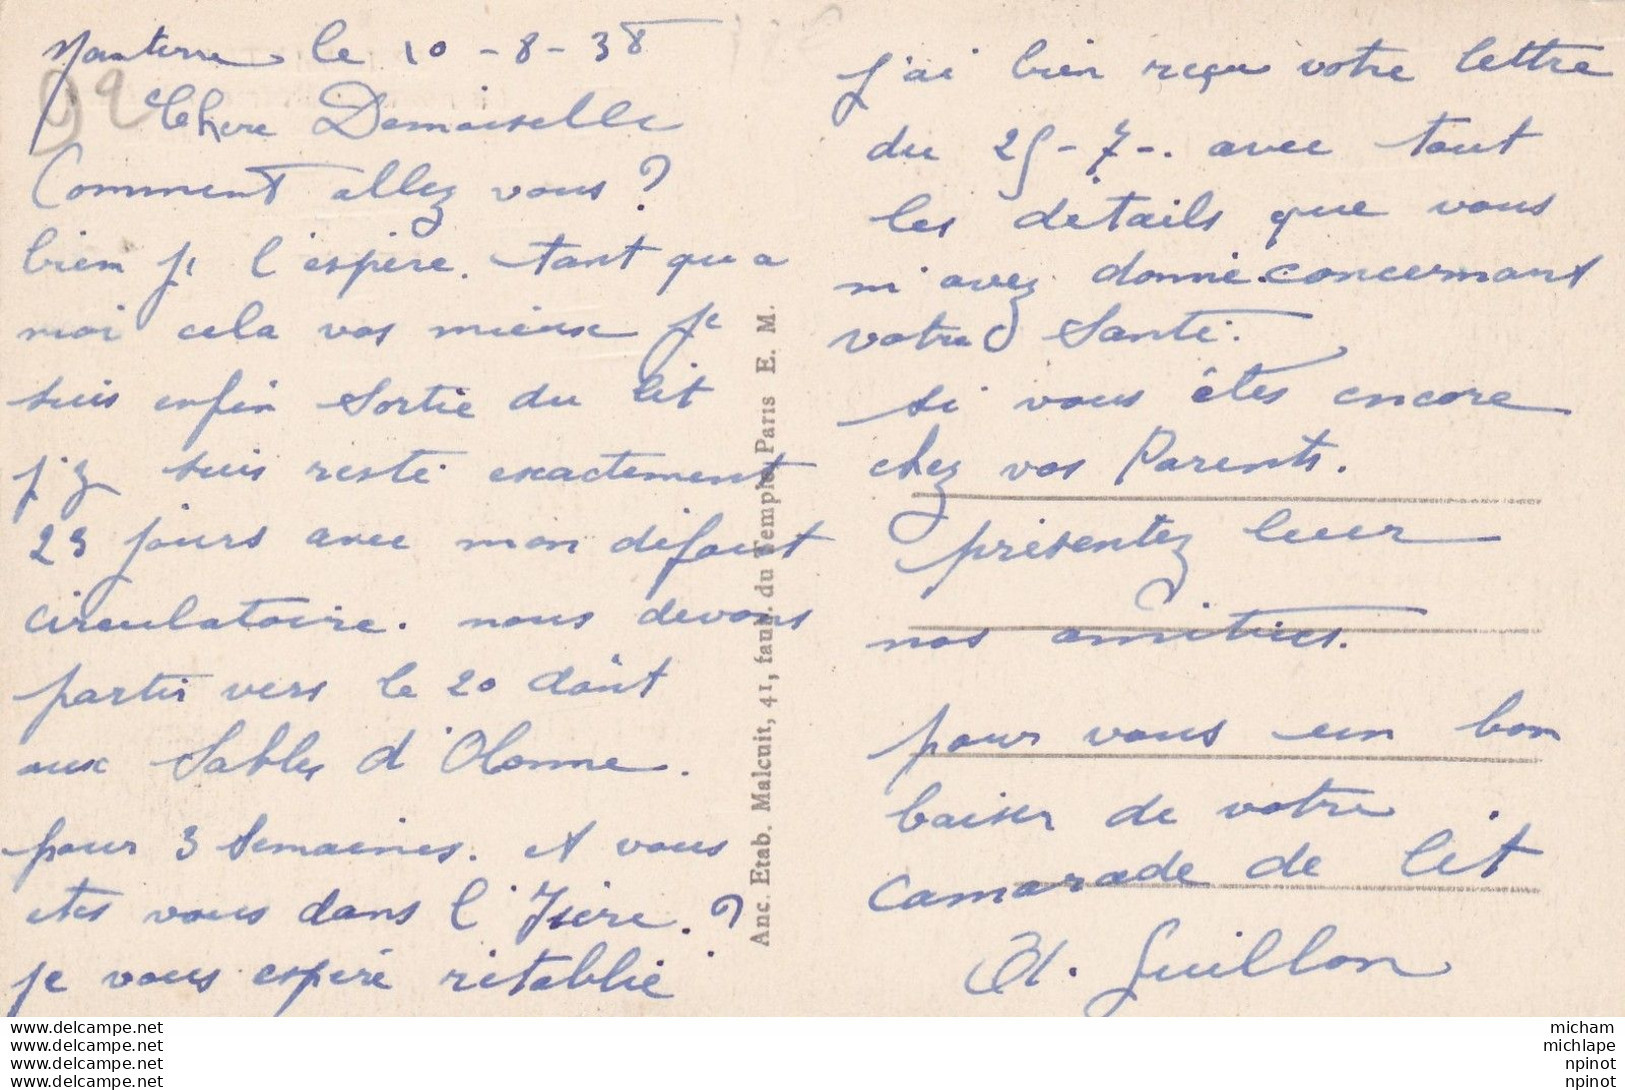 Nanterre le 10-8-38
92
Chere Demoiselle
Comment allez vous ?
bien je l'espère. tant qu a
moi cela vas mieux je
suis enfin sortie du lit
j'y suis resté exactement
23 jours avec mon difaut
circulatoire. nous devons
partir vers le 20 dâout
aux Sables d'Olonne.
pour 3 semaines. et vous
etes vous dans l'Isère. ?
je vous espéré rétablie
Anc. Etab. Malcuit, 41, faub. du Temple, Paris E. M.
j'ai bien reçu votre lettre
du 25-7-. avec tout
les détails que vous
m'avez donné concernant
votre Santé.
si vous êtes encore
chez vos Parents.
présentez leur
nos amitiés.
pour vous un bon
baiser de votre
camarade de lit
Guillon
www.delcampe.net
www.delcampe.net
www.delcampe.net
www.delcampe.net
micham
michlape
npinot
npinot